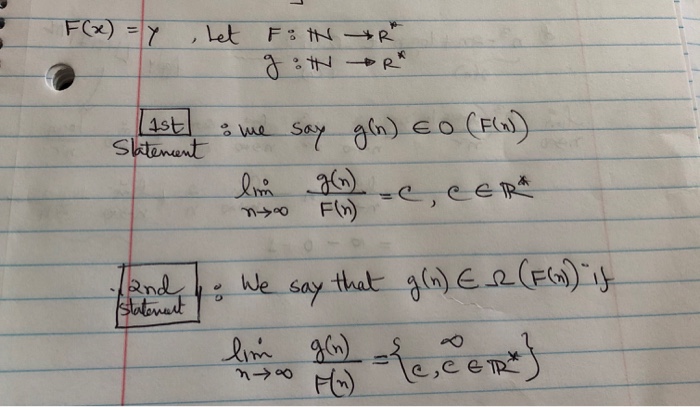 F(x) = y , Let F: ℕ → R*
g: ℕ → R*
1st Statement : we say g(n) ∈ O (F(n))
lim n→∞ g(n)/F(n) = c, c ∈ ℝ*
2nd Statement : We say that g(n) ∈ Ω (F(n)) if
lim n→∞ g(n)/F(n) = { ∞
c, c ∈ ℝ* }